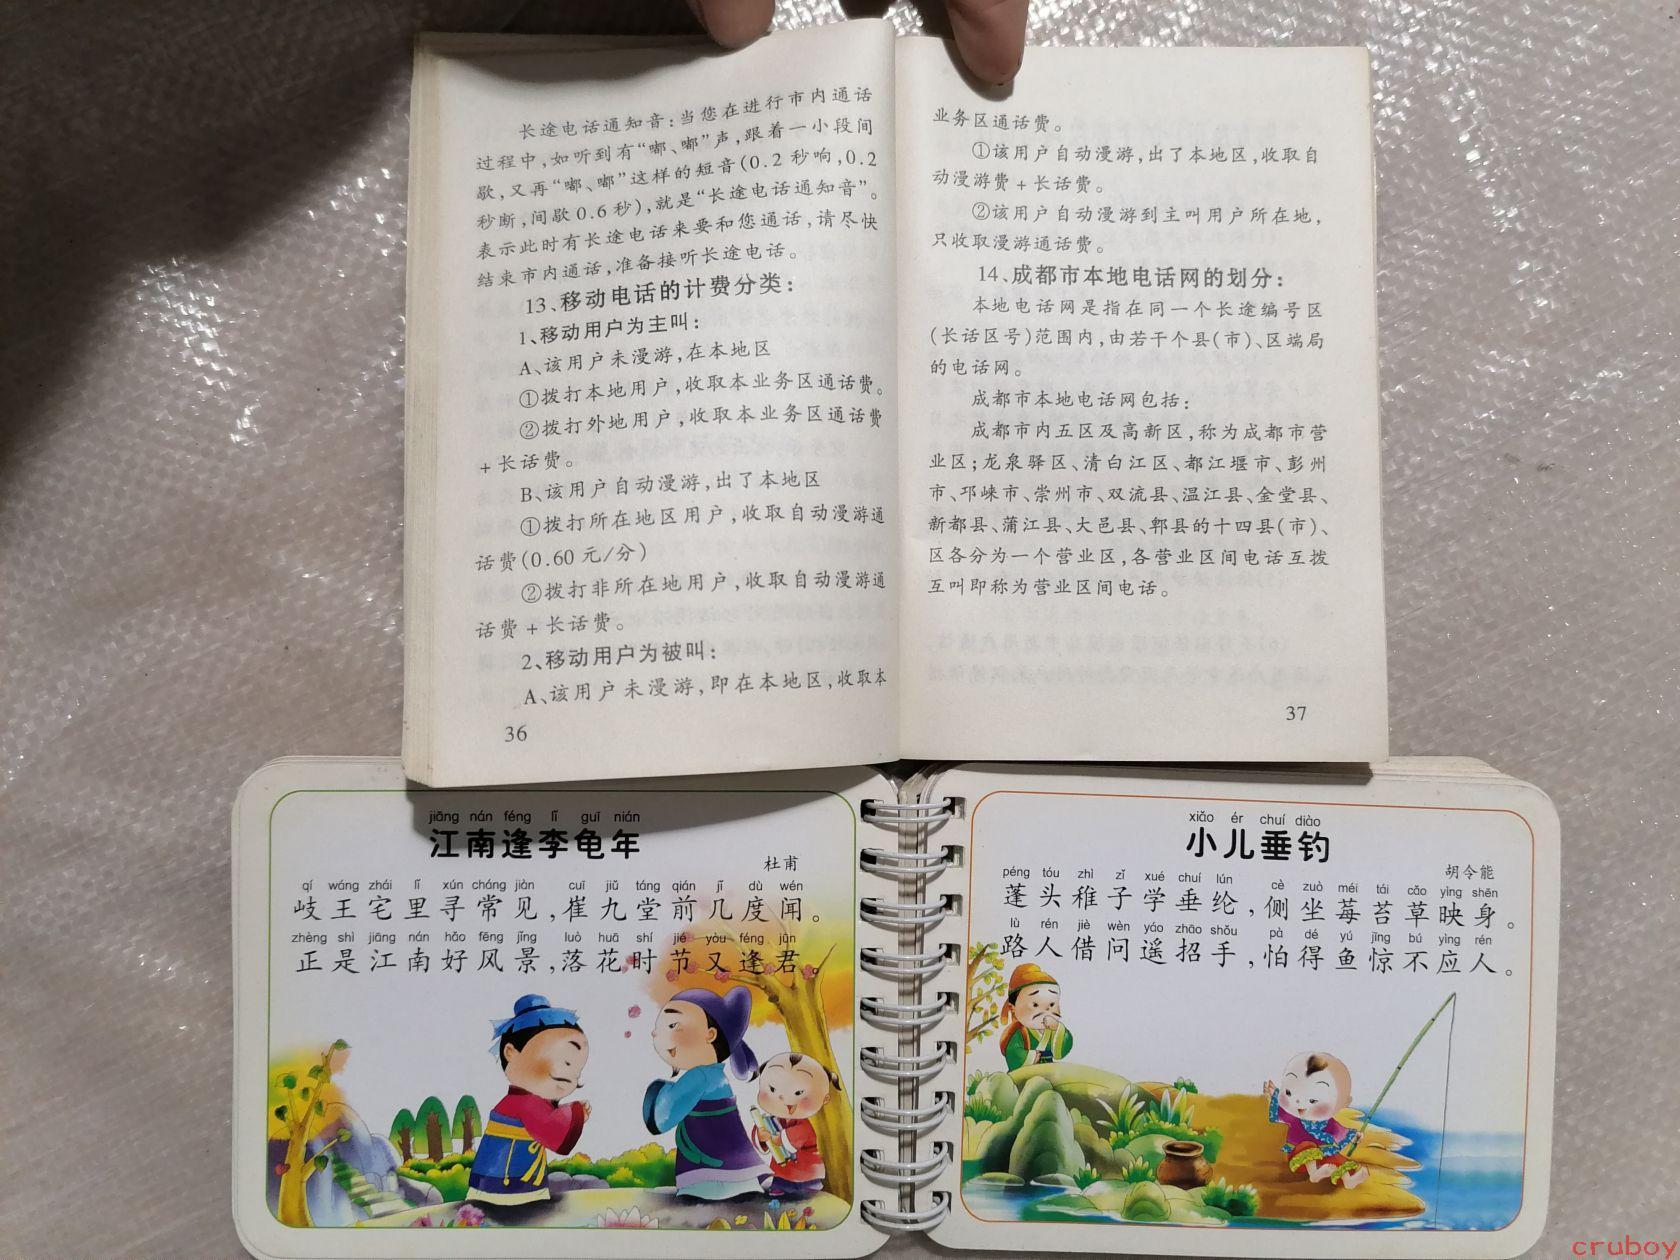 长途电话通知音:当您在进行市内通话
过程中,如听到有“嘟、嘟”声,跟着一小段间
歇,又再“嘟、嘟”这样的短音(0.2秒响,0.2
秒断,间歇0.6秒),就是“长途电话通知音”。
表示此时有长途电话来要和您通话,请尽快
结束市内通话,准备接听长途电话。
13、移动电话的计费分类:
1、移动用户为主叫:
A、该用户未漫游,在本地区
①拨打本地用户,收取本业务区通话费。
②拨打外地用户,收取本业务区通话费
+长话费。
B、该用户自动漫游,出了本地区
①拨打所在地区用户,收取自动漫游通
话费(0.60元/分)
②拨打非所在地用户,收取自动漫游通
话费+长话费。
2、移动用户为被叫:
A、该用户未漫游,即在本地区,收取本
36
业务区通话费。
①该用户自动漫游,出了本地区,收取自
动漫游费+长话费。
②该用户自动漫游到主叫用户所在地,
只收取漫游通话费。
14、成都市本地电话网的划分:
本地电话网是指在同一个长途编号区
(长话区号)范围内,由若干个县(市)、区端局
的电话网。
成都市本地电话网包括:
成都市内五区及高新区,称为成都市营
业区;龙泉驿区、清白江区、都江堰市、彭州
市、邛崃市、崇州市、双流县、温江县、金堂县、
新都县、蒲江县、大邑县、郫县的十四县(市)、
区各分为一个营业区,各营业区间电话互拨
互叫即称为营业区间电话。
37
jiāng nán féng lǐ guī nián
江南逢李龟年
杜甫
qí wáng zhái lǐ xún cháng jiàn cuī jiǔ táng qián jǐ dù wén
岐王宅里寻常见,崔九堂前几度闻。
zhèng shì jiāng nán hǎo fēng jǐng luò huā shí jié yòu féng jūn
正是江南好风景,落花时节又逢君。
xiǎo ér chuí diào
小儿垂钓
胡令能
péng tóu zhì zǐ xué chuí lún cè zuò méi tái cǎo yìng shēn
蓬头稚子学垂纶,侧坐莓苔草映身。
lù rén jiè wèn yáo zhāo shǒu pà dé yú jīng bú yìng rén
路人借问遥招手,怕得鱼惊不应人。
cruboy